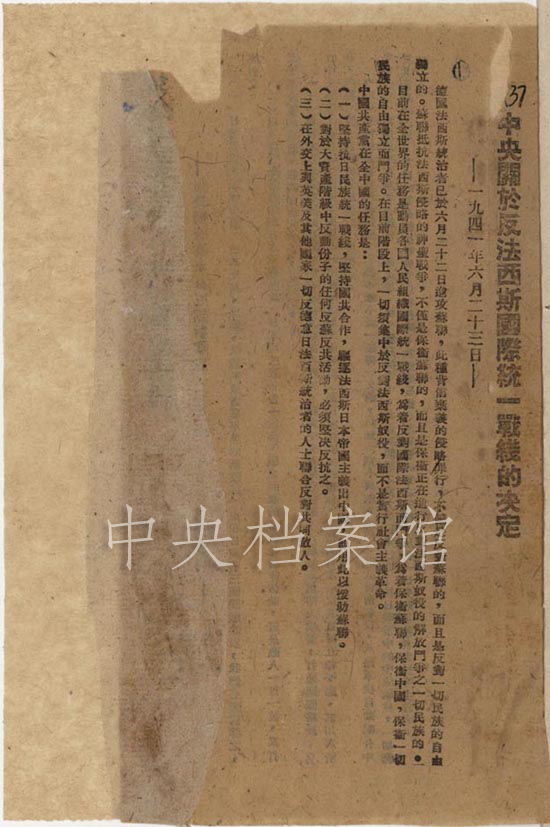 37
中央關於反法西斯國際統一戰綫的决定
——一九四一年六月二十三日——
德國法西斯統治者已於六月二十二日進攻蘇聯,此種背信棄義的侵略罪行,不 蘇聯的,而且是反對一切民族的自由
獨立的。蘇聯抵抗法西斯侵略的神聖戰爭,不僅是保衛蘇聯的,而且是保衛正在進行 西斯奴役的解放鬥爭之一切民族的。
目前在全世界的任務是動員各國人民組織國際統一戰綫,爲着反對國際法西斯 爲着保衛蘇聯,保衛中國,保衛一切
民族的自由獨立而鬥爭。在目前階段上,一切須集中於反對法西斯奴役,而不是實行社會主義革命。
中國共產黨在全中國的任務是:
(一)堅持抗日民族統一戰綫,堅持國共合作,驅逐法西斯日本帝國主義出中 此以援助蘇聯。
(二)對於大資產階級中反動份子的任何反蘇反共活動,必須堅决反抗之。
(三)在外交上與英美及其他國家一切反德意日法西斯統治者的人士聯合反對共同敵人。
中央档案馆